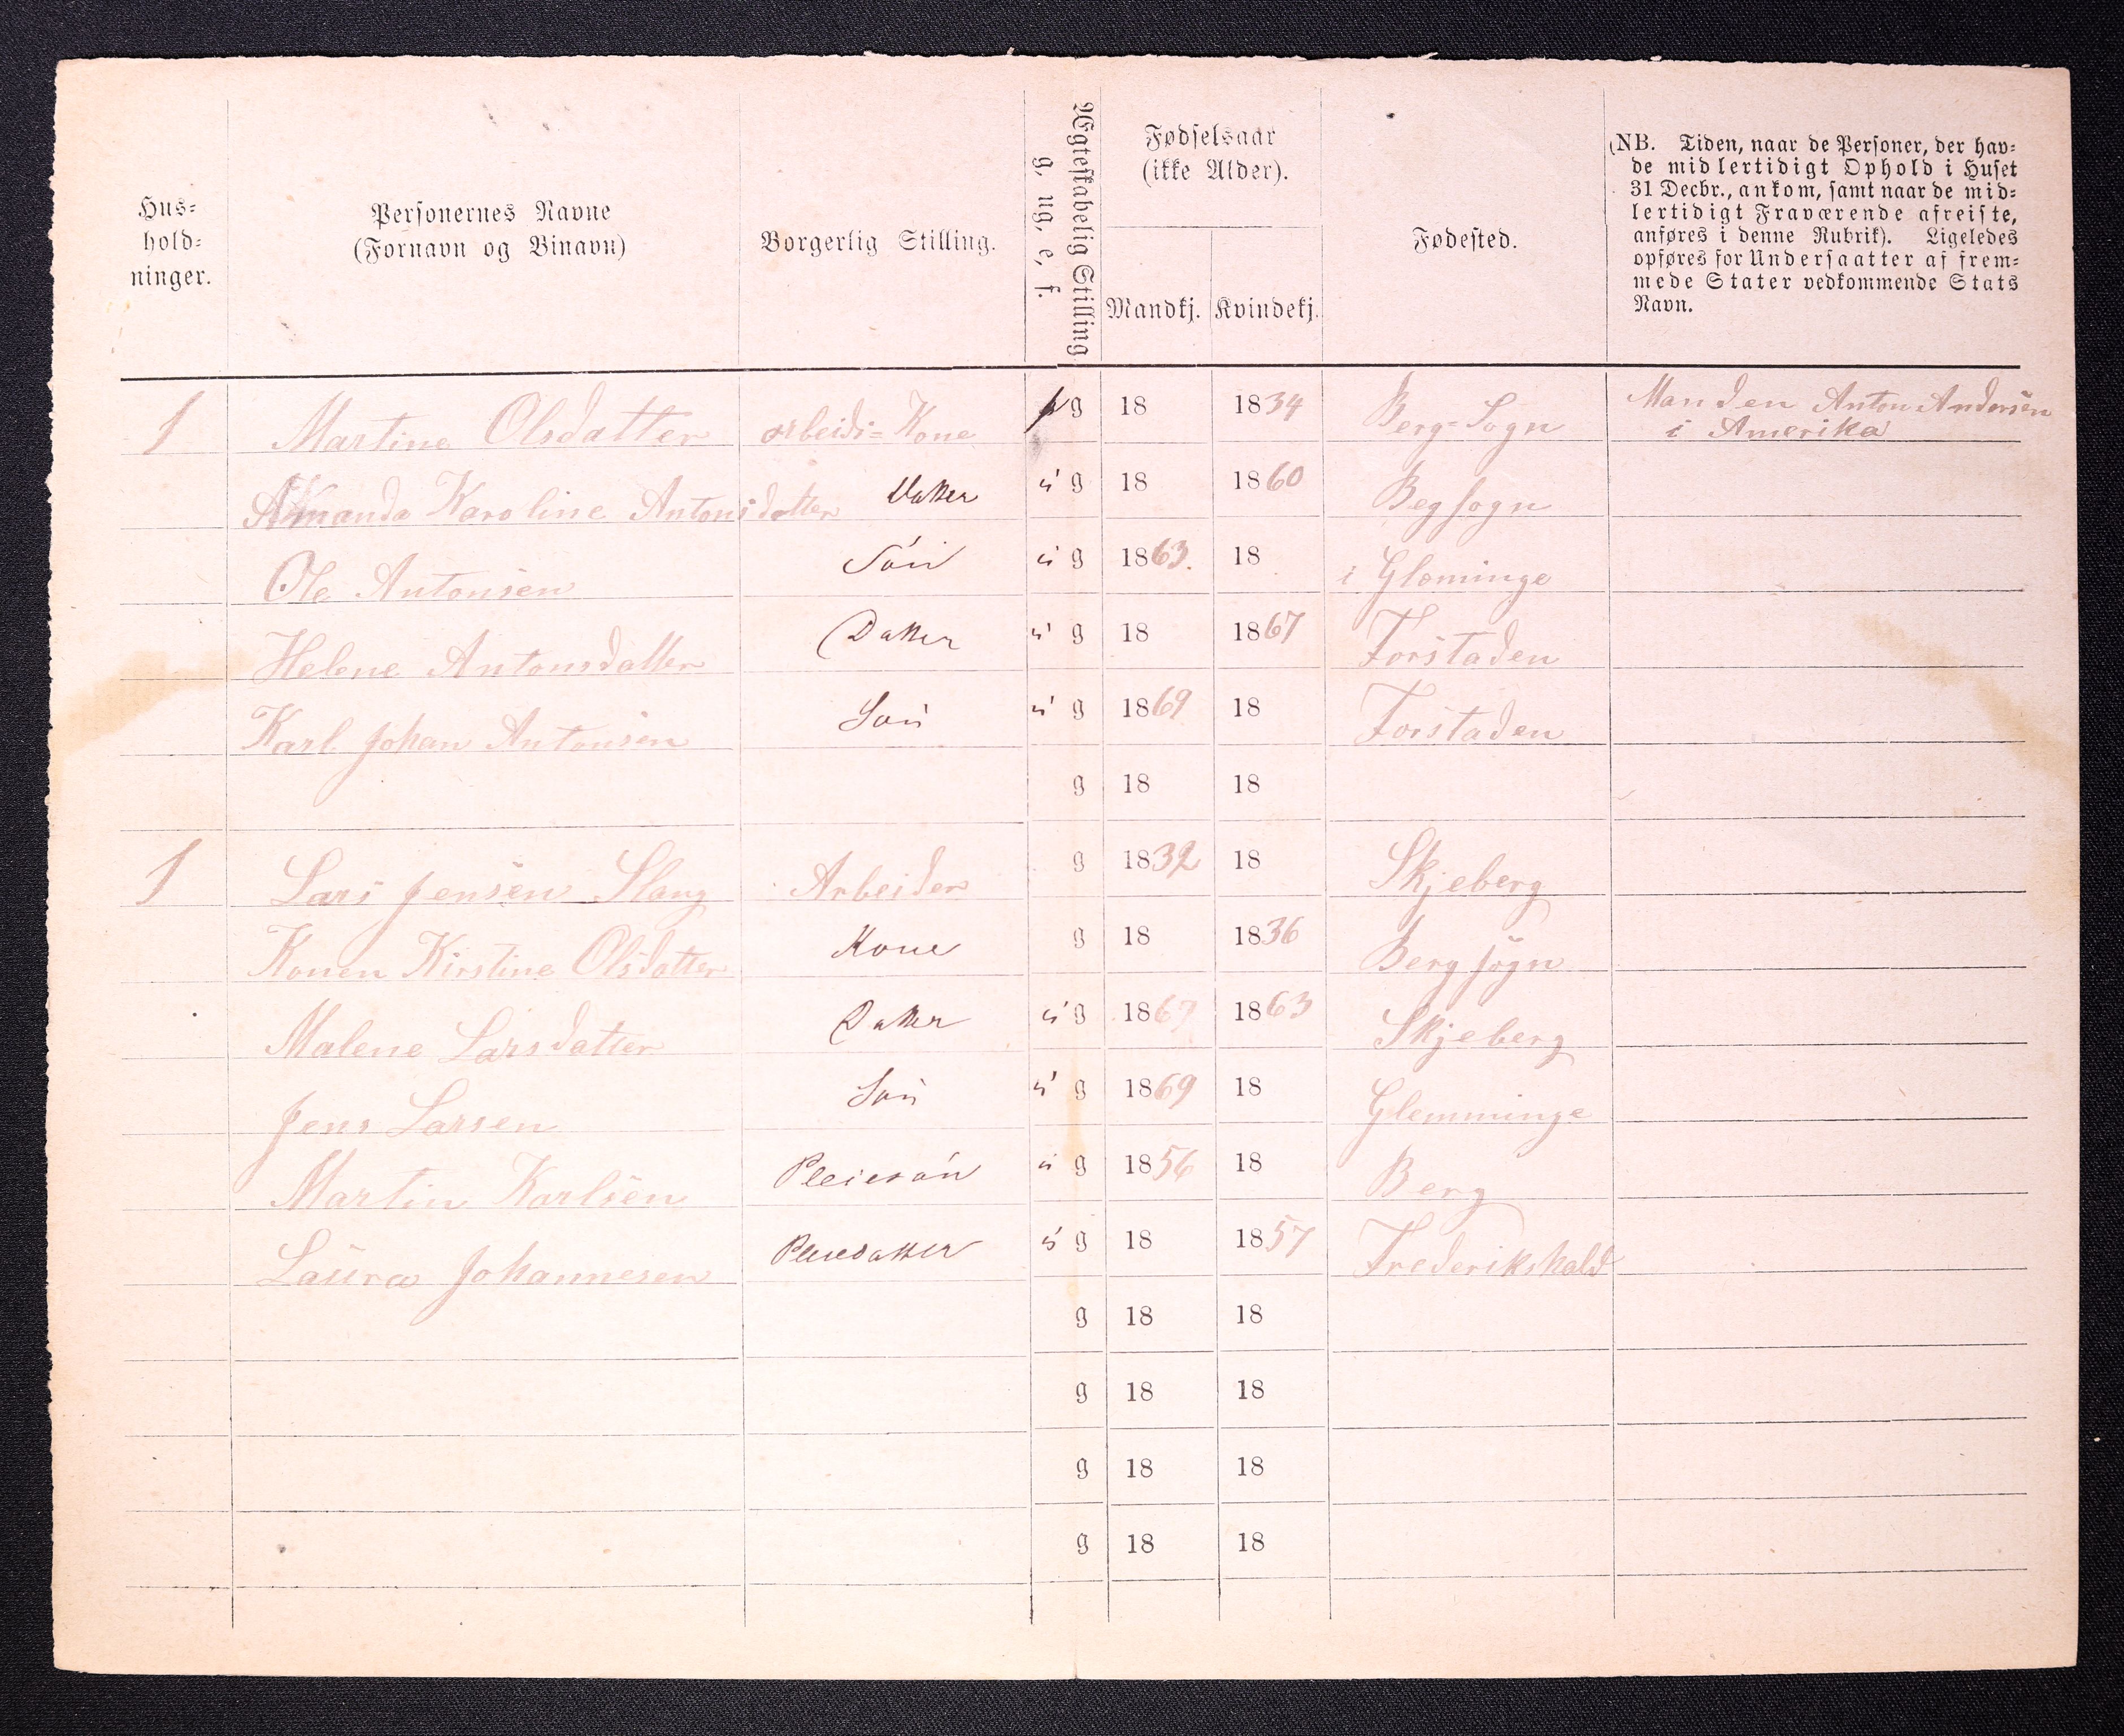 Hus-
hold-
ninger.
Personernes Navne
(Fornavn og Binavn)
Borgerlig Stilling.
Ægteskabelig Stilling
g, ug, e, f.
Fødselsaar
(ikke Alder).
Mandkj. Kvindekj.
Fødested.
(NB. Tiden, naar de Personer, der hav-
de midlertidigt Ophold i Huset
31 Decbr., ankom, samt naar de mid-
lertidigt Fraværende afreiste,
anføres i denne Rubrik). Ligeledes
opføres for Undersaatter af frem-
mede Stater vedkommende Stats
Navn.
1 Martine Olsdatter arbeids=Kone g 18 1834 Berg=Sogn Manden Anton Andersen
i Amerika
Amanda Karoline Antonsdatter Datter u g 18 1860 Beg sogn
Ole Antonsen Sön u g 1863. 18 i Glominge
Helene Antonsdatter Datter u g 18 1867 Forstaden
Karl Johan Antonsen Son u g 1869 18 Forstaden
g 18 18
1 Lars Jensen Slang Arbeider g 1832 18 Skjeberg
Konen Kirstine Olsdatter Kone g 18 1836 Berg sogn
Malene Larsdatter Datter u g 1867 1863 Skjeberg
Jens Larsen Son u g 1869 18 Glemminge
Martin Karlsen Pleiesön u g 1856 18 Berg
Laura Johannesen Pleiedatter u g 18 1857 Frederikshald
g 18 18
g 18 18
g 18 18
g 18 18